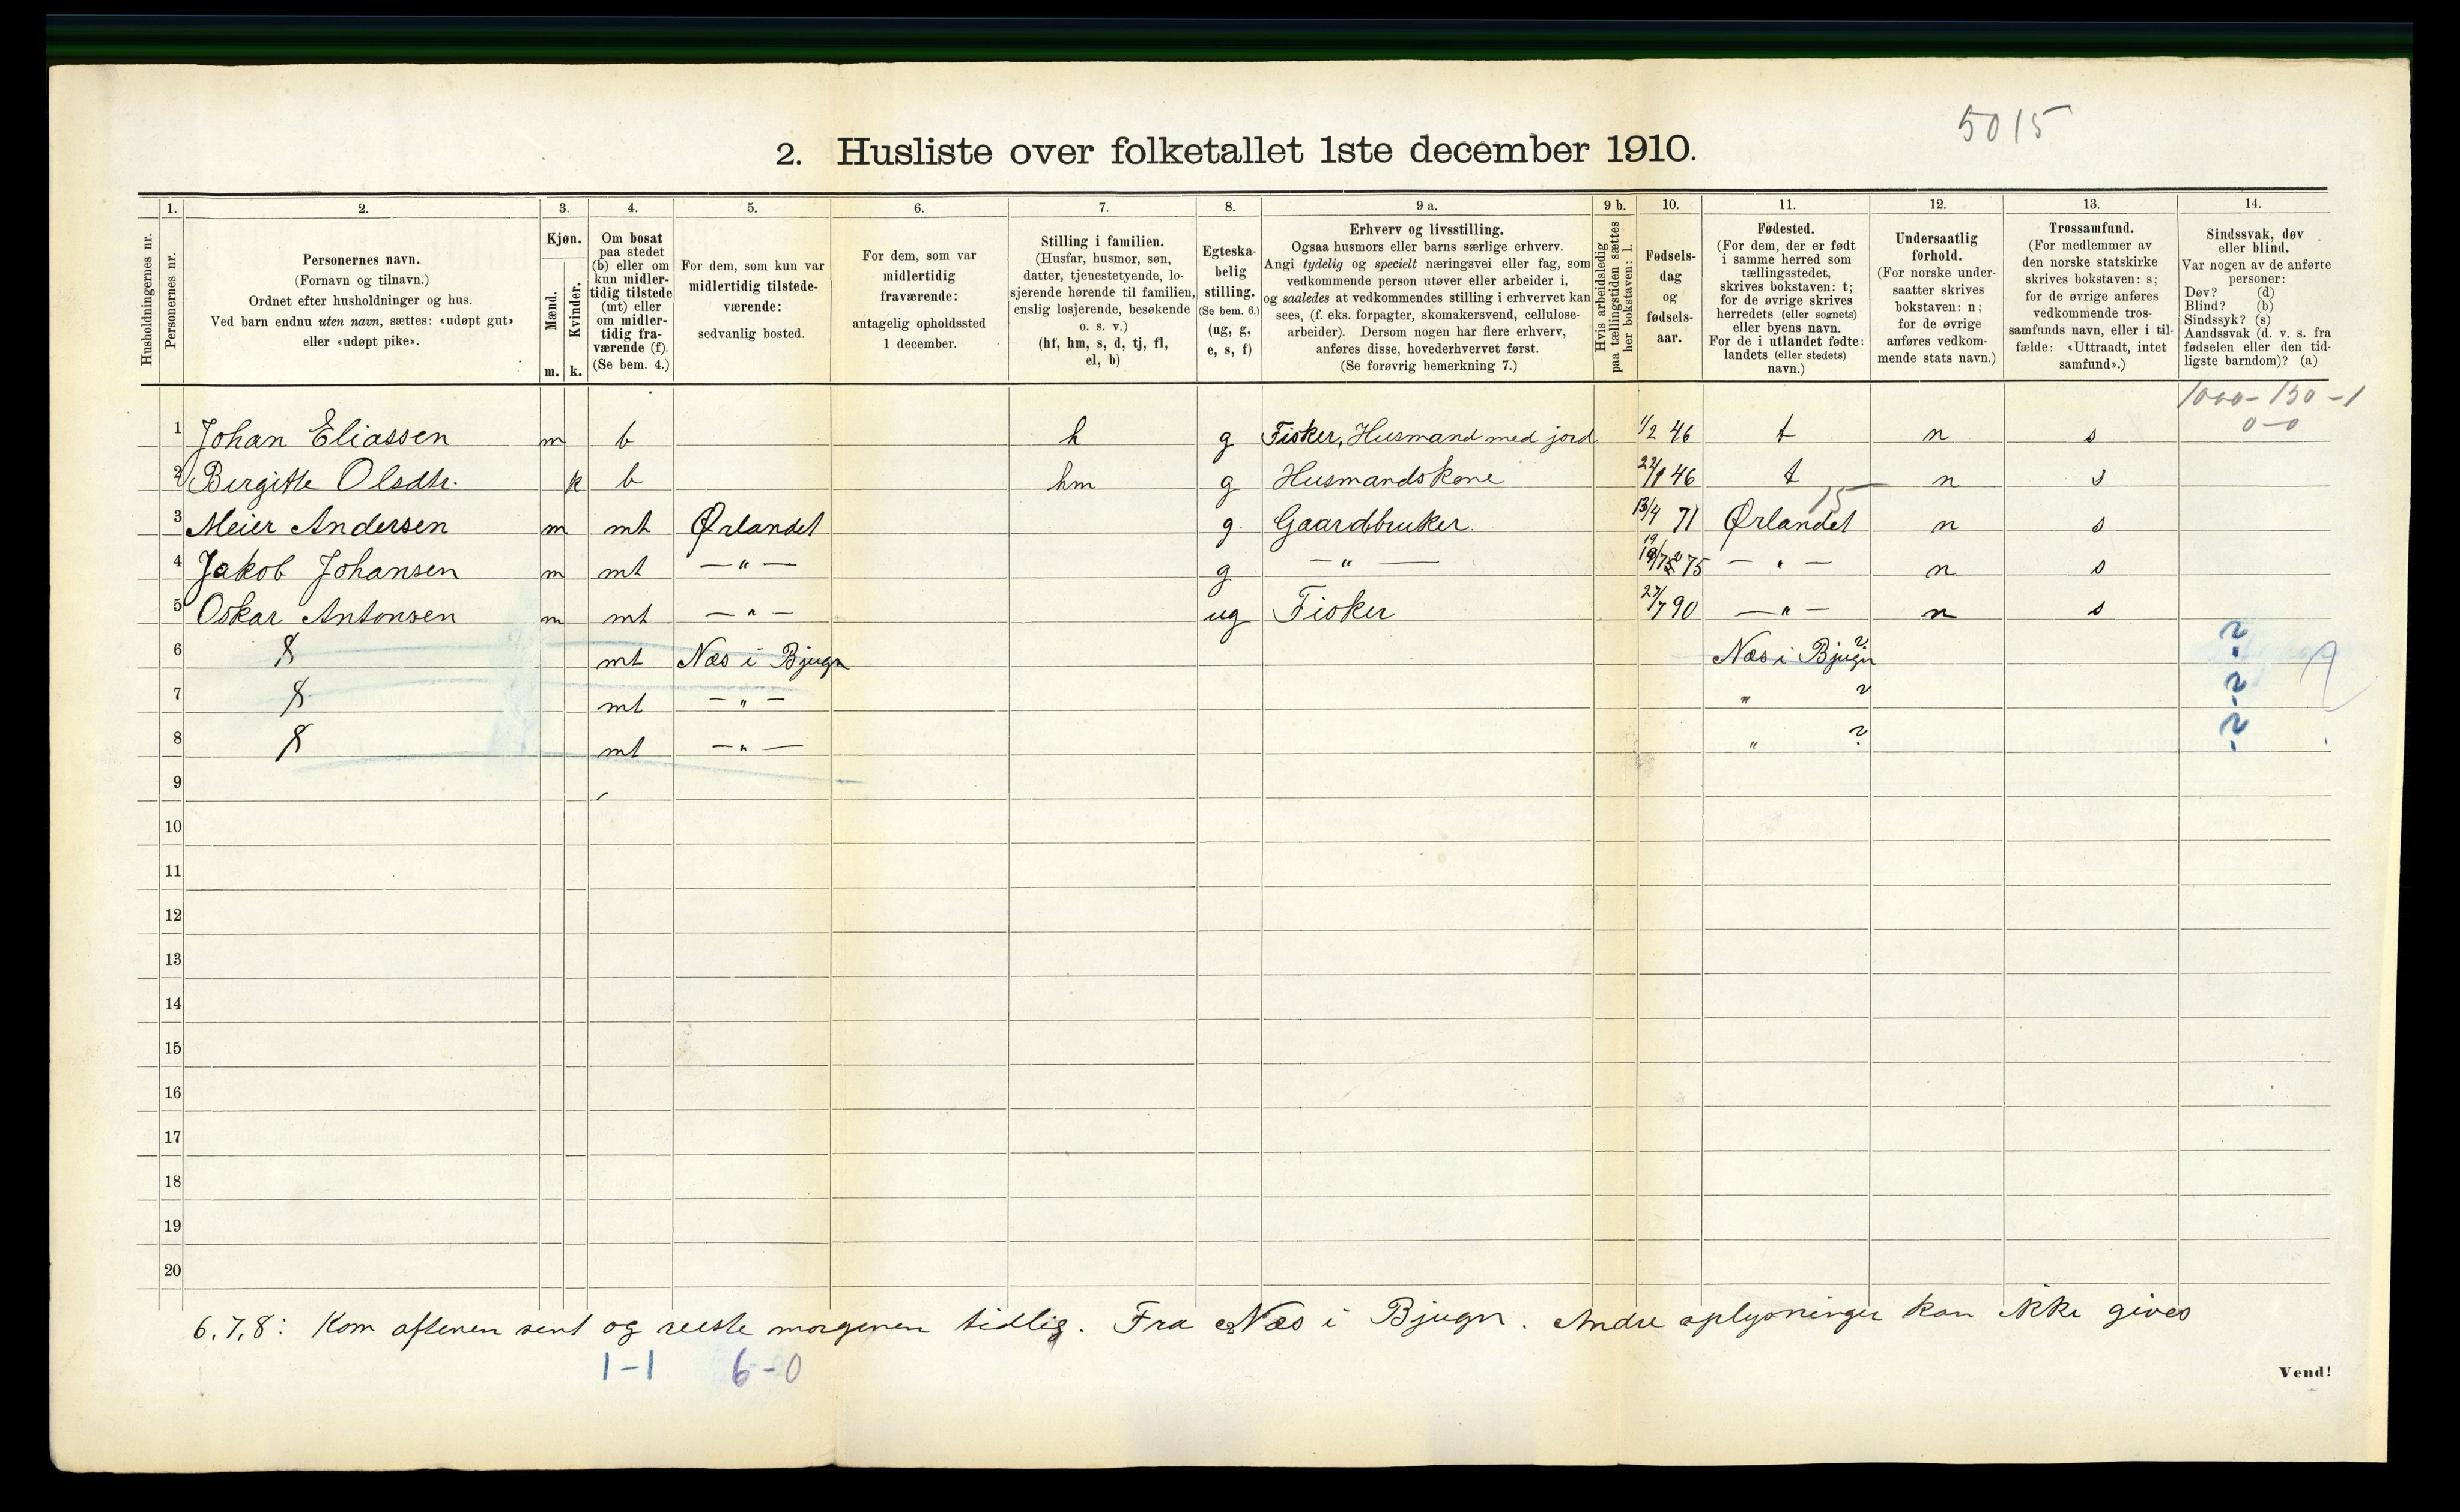 5015
2. Husliste over folketallet 1ste december 1910.
Husholdningernes nr.
1. Personernes nr.
2. Personernes navn. (Fornavn og tilnavn.) Ordnet efter husholdninger og hus. Ved barn endnu uten navn, sættes: «udøpt gut» eller «udøpt pike».
3. Kjøn. Mænd. m. Kvinder. k.
4. Om bosat paa stedet (b) eller om kun midlertidig tilstede (mt) eller om midlertidig fraværende (f). (Se bem. 4.)
5. For dem, som kun var midlertidig tilstedeværende: sedvanlig bosted.
6. For dem, som var midlertidig fraværende: antagelig opholdssted 1 december.
7. Stilling i familien. (Husfar, husmor, søn, datter, tjenestetyende, losjerende hørende til familien, enslig losjerende, besøkende o. s. v.) (hf, hm, s, d, tj, fl, el, b)
8. Egteskabelig stilling. (Se bem. 6.) (ug, g, e, s, f)
9 a. Erhverv og livsstilling. Ogsaa husmors eller barns særlige erhverv. Angi tydelig og specielt næringsvei eller fag, som vedkommende person utøver eller arbeider i, og saaledes at vedkommendes stilling i erhvervet kan sees, (f. eks. forpagter, skomakersvend, cellulosearbeider). Dersom nogen har flere erhverv, anføres disse, hovederhvervet først. (Se forøvrig bemerkning 7.)
9 b. Hvis arbeidsledig paa tællingstiden sættes her bokstaven: l.
10. Fødselsdag og fødselsaar.
11. Fødested. (For dem, der er født i samme herred som tællingsstedet, skrives bokstaven: t; for de øvrige skrives herredets (eller sognets) eller byens navn. For de i utlandet fødte: landets (eller stedets) navn.)
12. Undersaatlig forhold. (For norske undersaatter skrives bokstaven: n; for de øvrige anføres vedkommende stats navn.)
13. Trossamfund. (For medlemmer av den norske statskirke skrives bokstaven: s; for de øvrige anføres vedkommende trossamfunds navn, eller i tilfælde: «Uttraadt, intet samfund».)
14. Sindssvak, døv eller blind. Var nogen av de anførte personer: Døv? (d) Blind? (b) Sindssyk? (s) Aandssvak (d. v. s. fra fødselen eller den tidligste barndom)? (a)
1000-130-1
0-0
1 Johan Eliassen m b h g Fisker, Husmand med jord 1/2 46 t n s
2 Bergitte Olsdtr. k b hm g Husmandskone 22/8 46 t n s
15
3 Meier Andersen m mt Ørlandet g. Gaardbruker. 13/4 71 Ørlandet n s
4 Jakob Johansen m mt —"— g —"— 75 —"— n s
5 Oskar Antonsen m mt —"— ug Fisker 27/7 90 —"— n s
6 mt Næs i Bjugn Næs i Bjugn ? ?
7 mt —"— " ? ?
8 mt —"— " ? ?
9
10
11
12
13
14
15
16
17
18
19
20
6, 7, 8: Kom aftenen sent og reiste morgenen tidlig. Fra Næs i Bjugn. Andre oplysninger kan ikke gives
1-1 6-0
Vend!